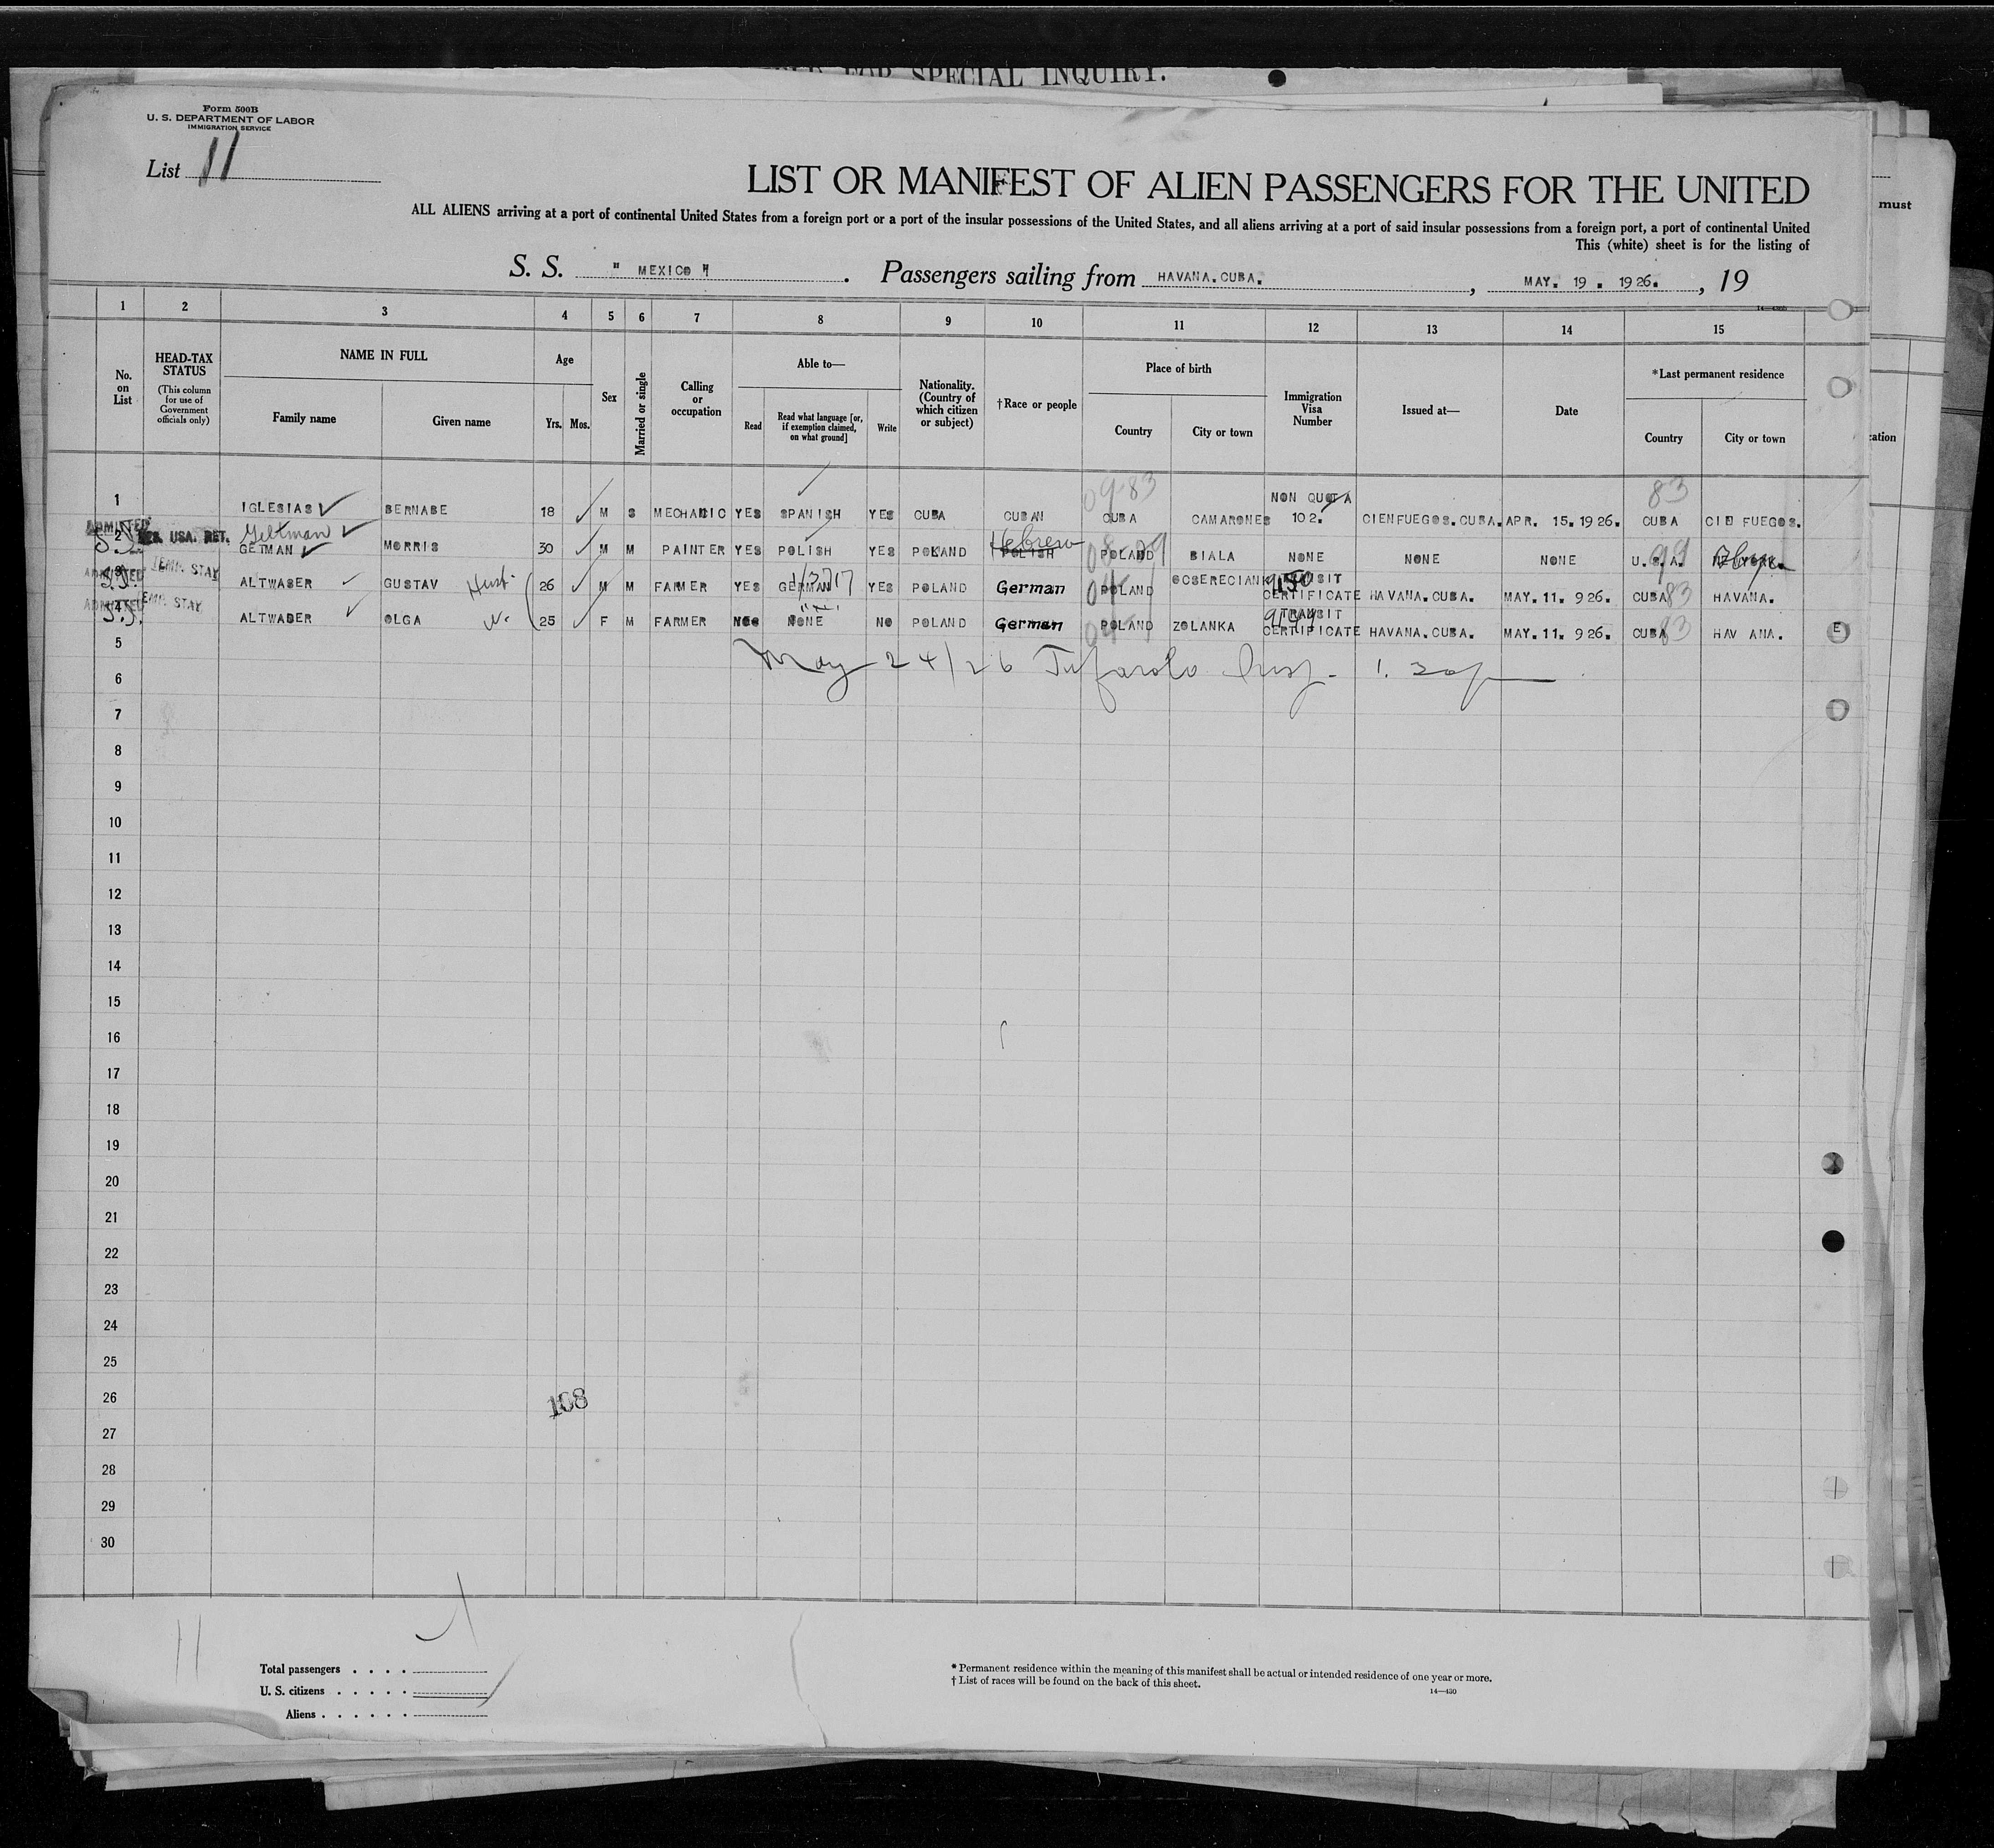 FOR SPECIAL INQUIRY.
Form 500B
U. S. DEPARTMENT OF LABOR
IMMIGRATION SERVICE
List 11
LIST OR MANIFEST OF ALIEN PASSENGERS FOR THE UNITED
ALL ALIENS arriving at a port of continental United States from a foreign port or a port of the insular possessions of the United States, and all aliens arriving at a port of said insular possessions from a foreign port, a port of continental United
This (white) sheet is for the listing of
must
S. S. " MEXICO " . Passengers sailing from HAVANA.CUBA. , MAY. 19 . 1926. , 19
1 2 3 4 5 6 7 8 9 10 11 12 13 14 15
No. on List
HEAD-TAX STATUS
(This column for use of Government officials only)
NAME IN FULL
Family name Given name
Age
Yrs. Mos.
Sex
Married or single
Calling or occupation
Able to—
Read Read what language [or, if exemption claimed, on what ground] Write
Nationality. (Country of which citizen or subject)
†Race or people
Place of birth
Country City or town
Immigration Visa Number
Issued at—
Date
*Last permanent residence
Country City or town
09-83 83
1 IGLESIAS BERNABE 18 M S MECHANIC YES SPANISH YES CUBA CUBAN CUBA CAMARONES NON QUOTA 102. CIENFUEGOS.CUBA. APR. 15.1926. CUBA CIEFUEGOS.
ADMITTED USA. RET. Geltman Hebrew
2 GETMAN MORRIS 30 M M PAINTER YES POLISH YES POLAND POLISH POLAND BIALA NONE NONE NONE U.S.A. 99
ADMITTED TEMP. STAY
3 ALTWASER GUSTAV Husb. 26 M M FARMER YES GERMAN YES POLAND German POLAND OCSERECIANK TRANSIT CERTIFICATE HAVANA.CUBA. MAY.11. 926. CUBA 83 HAVANA.
ADMITTED TEMP. STAY
4 ALTWASER OLGA W. 25 F M FARMER NONE NO POLAND German POLAND ZOLANKA TRANSIT CERTIFICATE HAVANA.CUBA. MAY.11. 926. CUBA 83 HAVANA.
5
May 24/26 Insp.
6
7
8
9
10
11
12
13
14
15
16
17
18
19
20
21
22
23
24
25
26
108
27
28
29
30
11
Total passengers . . . .
U. S. citizens . . . . .
Aliens . . . . . .
* Permanent residence within the meaning of this manifest shall be actual or intended residence of one year or more.
† List of races will be found on the back of this sheet.
14—430